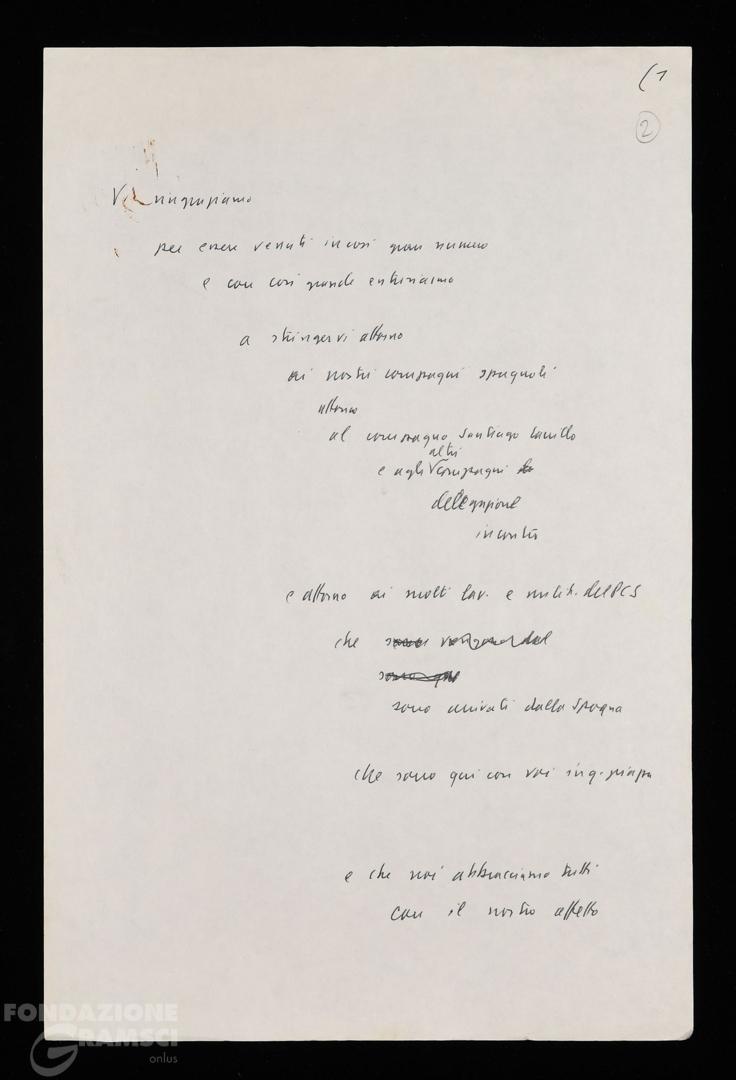 (1
2
Vi ringraziamo
per essere venuti in così gran numero
e con così grande entusiasmo
a stringervi attorno
ai nostri compagni spagnoli
attorno
al compagno Santiago Carrillo
altri
e agli compagni
delegazione
incontro
e attorno ai molti lav. e milit. del PCS
che
sono arrivati dalla Spagna
che sono qui con voi in q. piazza
e che noi abbracciamo tutti
con il nostro affetto
FONDAZIONE
GRAMSCI
onlus